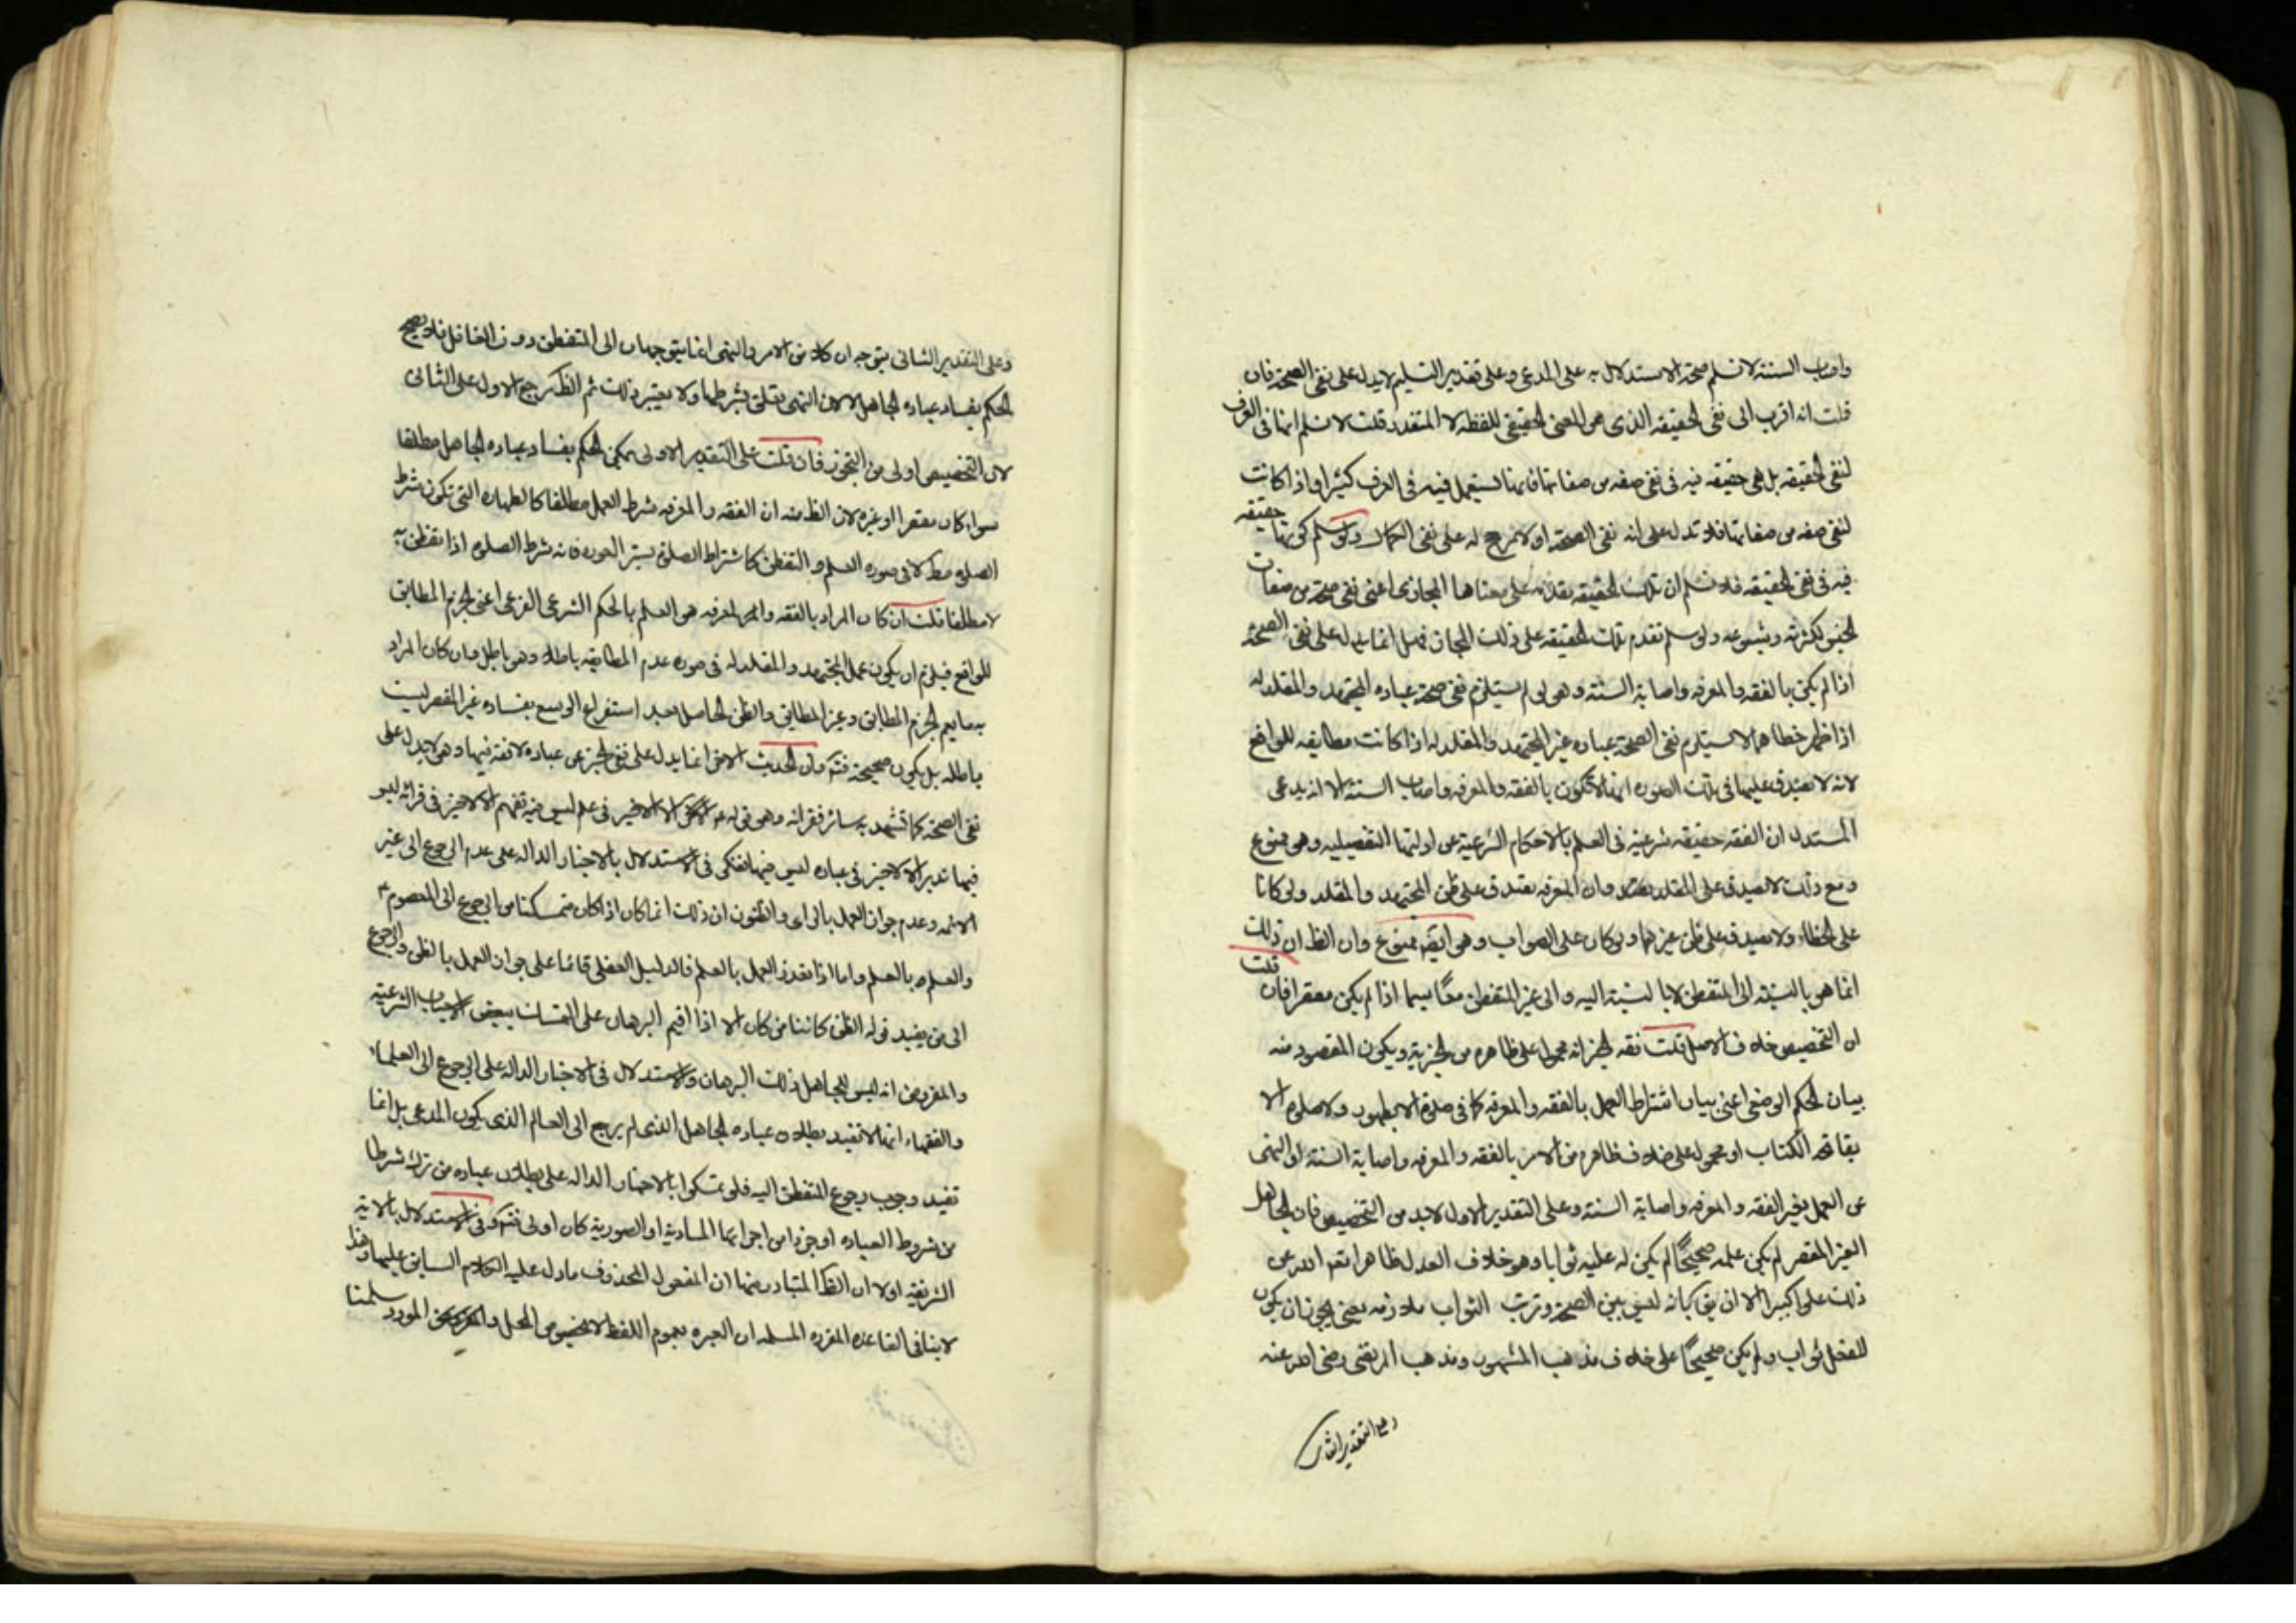 واصاب السنة لا نسلم صحة الاستدلال به على المدعى وعلى تقدير التسليم لا يدل على نفى الصحة فان
قلت انه اقرب الى نفى الحقيقة الذى هو المعنى الحقيقى للفظة لا المتعذر قلت لا نسلم انها فى العرف
لنفى الحقيقة بل هى حقيقة فيه فى نفى صفه من صفاتها فانها تستعمل فيه فى العرف كثيرا واذا كانت
لنفى صفه من صفاتها فلا تدل على انه نفى الصحة اذ لا مرجح له على نفى الكمال ولو سلم كونها حقيقة
فيه فى نفى الحقيقه فلا نسلم ان تلك الحقيقه مقدمه على معناها المجازى اعنى نفى صحة من صفات
الجنس لكثرته وشيوعه ولو سلم تقدم تلك الحقيقه على ذلك المجاز فهل انما يدل على نفى الصحة
اذا لم يكن بالفقه والمعرفه واصابة السنة وهو لو لم يستلزم نفى صحة عباده المجتهد والمقلد له
اذا ظهر خطاهما لا يستلزم نفى الصحة عباده غير المجتهد والمقلد له اذا كانت مطابقه للواقع
لانه لا يصدق عليها فى تلك الصوره انها لا تكون بالفقه والمعرفه واصاب السنة الا انه يدعى
المستدل ان الفقه حقيقه شرعية فى العلم بالاحكام الشرعية عن ادلتها التفصيليه وهو ممنوع
ومع ذلك لا يصدق على المقلد وان المعرفه يصدق على ظن المجتهد والمقلد ولو كانا
على الخطاء ولا يصدق على ظن غيرهما ولو كان على الصواب وهو ايضه ممنوع وان الظ ان ذلك
انما هو بالنسبة الى المتفطن لا بالنسبة اليه والى غير المتفطن معًا سيما اذا لم يكن مقصرا فان قلت
ان التخصيص خلاف الاصل قلت نفه الخبر انه محمول على ظاهره من الخبرية ويكون المقصود منه
بيان الحكم الوضعى اعنى بيان اشتراط العمل بالفقه والمعرفه كما فى صلوة الا بطهور ولا صلوة الا
بفاتحه الكتاب او محمول على خلاف ظاهره من الامر بالفقه والمعرفه واصابة السنة او النهى
عن العمل بغير الفقه والمعرفه واصابة السنة وعلى التقدير الاول لا بد من التخصيص فان الجاهل
الغير المقصر لم يكن عمله صحيحًا لم يكن له عليه ثوابا وهو خلاف العدل ظاهرا تعه الله عن
ذلك علوا كبيرا الا ان يق بانه ليس بين الصحة وترتب الثواب ملازمه بمعنى يجوز ان يكون
للفعل ثواب ولم يكن صحيحًا على خلاف مذهب المشهور ومذهب المرتضى رضى الله عنه
وعلى التقدير الثانى
وعلى التقدير الثانى يتوجه ان كلا من الامر والنهى انما يتوجهان الى المتفطن دون الغافل فلا يصح
الحكم بفساد عباده الجاهل الا ان النهى يتعلق بشرطها ولا يعتبر ذلك ثم الظ ترجيح الاول على الثانى
لان التخصيص اولى من التجوز فان قلت على التقدير الاول يمكن الحكم بفساد عباده الجاهل مطلقا
سواء كان مقصرا او غيره لان الظ منه ان الفقه والمعرفه شرط العمل مطلقا كالطهارة التى تكون شرط
الصلوه مط لا فى صوره العلم والتفطن كاشتراط الصلوة بستر العوره فانه شرط الصلوه اذا تفطن به
لا مطلقا قلت ان كان المراد بالفقه والمعرفه هو العلم بالحكم الشرعى الفرعى اعنى الجزم المطابق
للواقع فيلزم ان يكون عمل المجتهد والمقلد له فى صوره عدم المطابقه باطلا وهو باطل وان كان المراد
به ما يعم الجزم المطابق وغير المطابق والظن الحاصل بعد استفراغ الوسع بفساده غير المقصر ليست
باطله بل يكون صحيحة فتم وان الحديث الاخر انما يدل على نفى الخير عن عباده لا فقه فيها وهو لا يدل على
نفى الصحة كما تشهد به سائر فقراته وهو قوله ع الا لا خير فى علم ليس فيه تفهم الا لا خير فى قرائه ليس
فيها تدبر الا لا خير فى عباده ليس فيها تفكر فى الاستدلال بالاخبار الداله على عدم الرجوع الى غير
الائمه وعدم جواز العمل بالراى والظنون ان ذلك انما كان اذا كان متمسكنا من الرجوع الى المعصوم ع
والعلم بالعلم واما اذا تعذر العمل بالعلم فالدليل العقلى قائما على جواز العمل بالظن والرجوع
الى من يفيد قوله الظن كائنا من كان الا اذا اقيم البرهان على الفساد ببعض الاسباب الشرعية
والمفروض انه ليس للجاهل ذلك البرهان والاستدلال فى الاخبار الداله على الرجوع الى العلماء
والفقهاء انها لا تفيد بطلان عباده الجاهل الذى لم يرجع الى العالم الذى يكون المدعى بل انما
تفيد وجوب رجوع المتفطن اليه فلو تمسكوا بالاخبار الداله على بطلان عباده من ترك شرطا
من شروط العباده او جزءا من اجزائها المادية او الصورية كان اولى فتم وفى الاستدلال بالاية
الشريفة اولا ان الظ المتبادر منها ان المفعول المحذوف ما دل عليه الكلام السابق عليها وهذا
لا ينافى القاعده المقرره المسلمه ان العبره بعموم اللفظ لا بخصوص المحل والمورد سلمنا